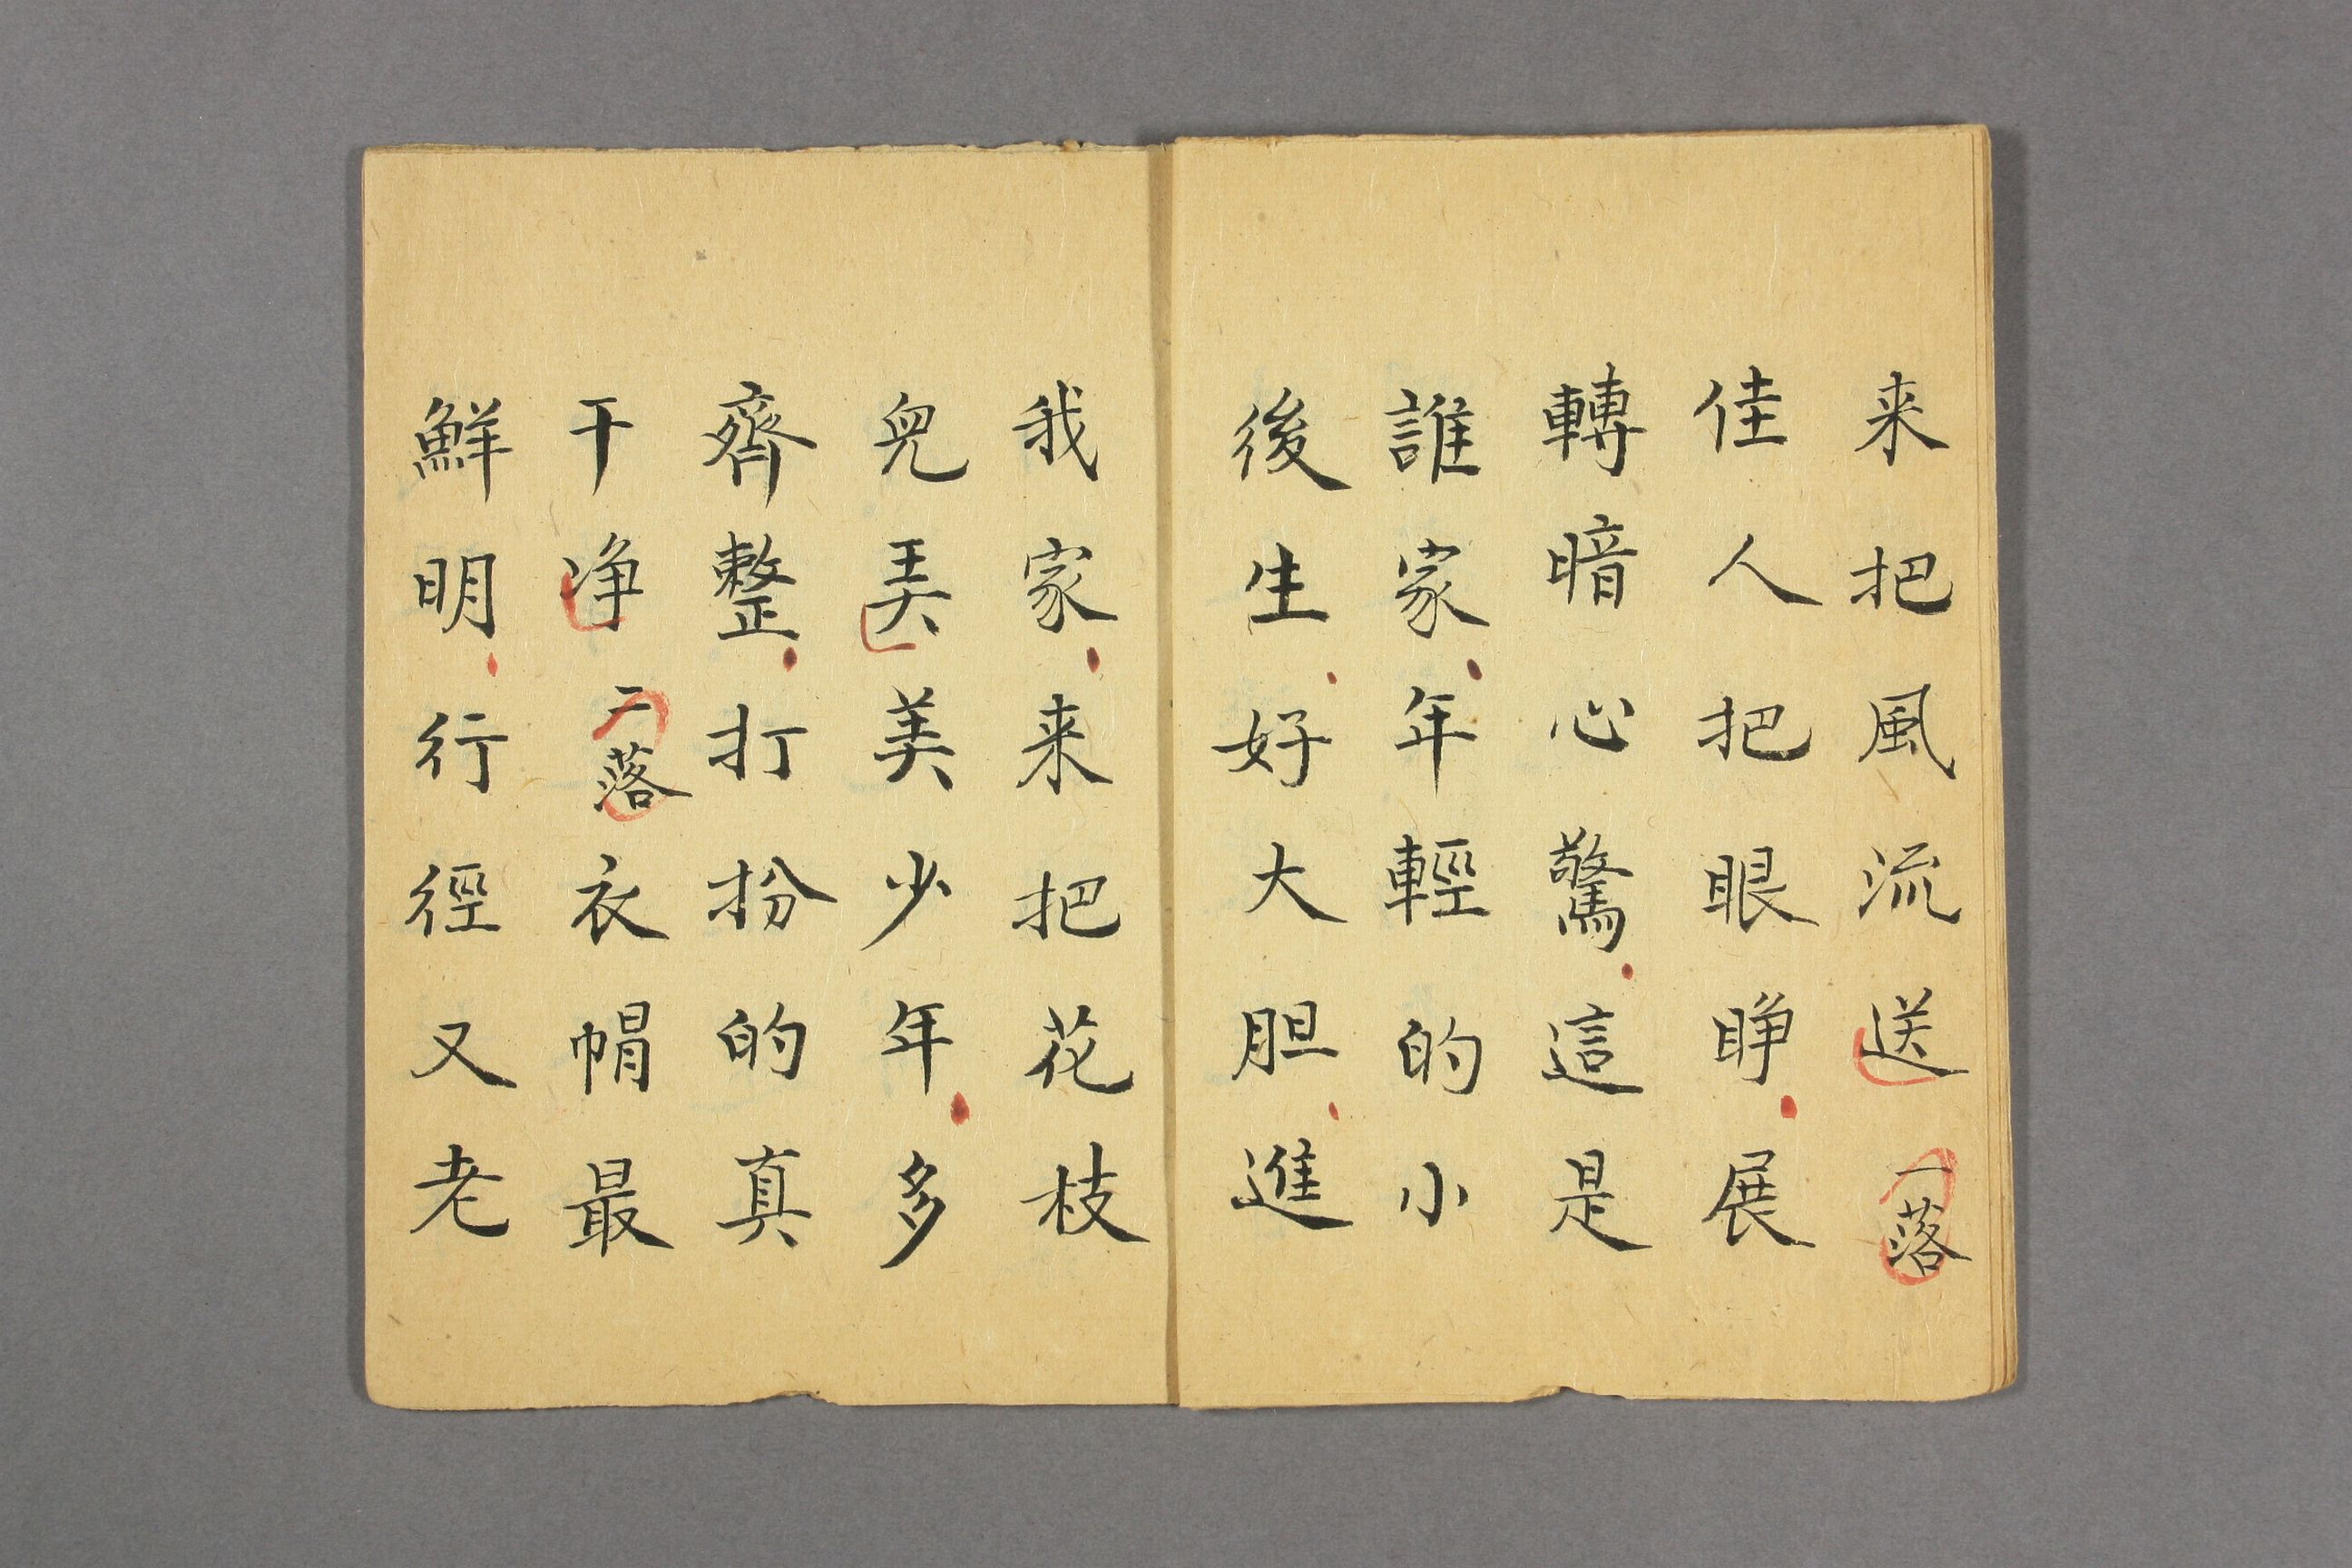 来把風流送一落
佳人把眼睁展
轉暗心驚這是
誰家年輕的小
後生好大胆進
我家来把花枝
兒弄美少年多
齊整打扮的真
干净二落衣帽最
鮮明行徑又老